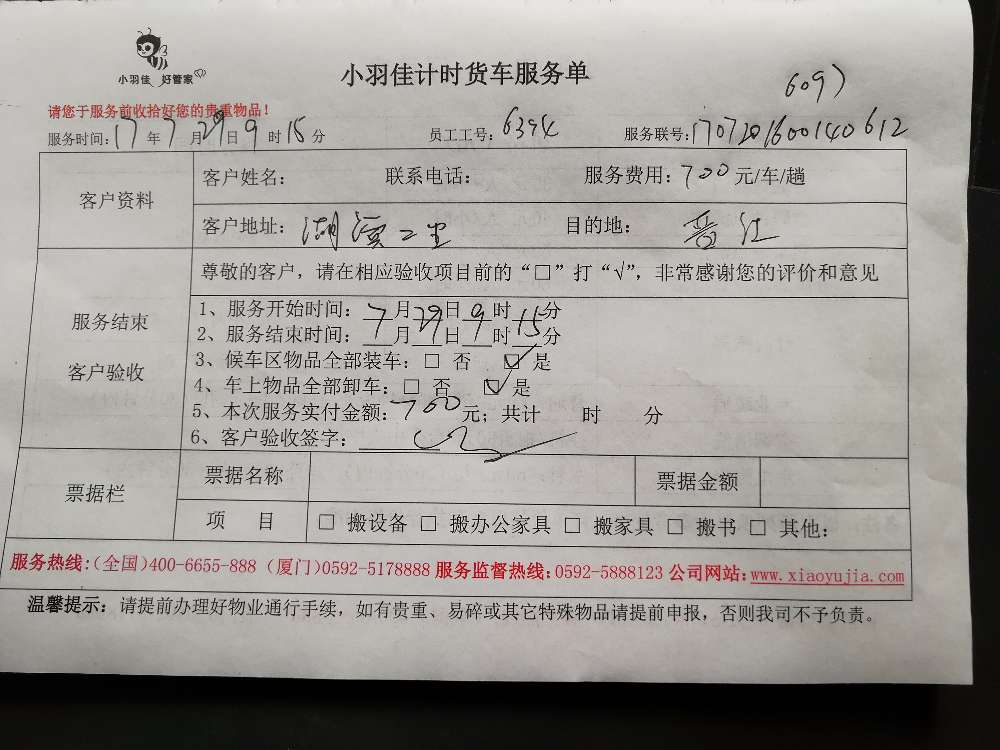 小羽佳 好管家
小羽佳计时货车服务单
6097
请您于服务前收拾好您的贵重物品！
服务时间：17年7月29日9时15分 员工工号：6394 服务联号：1707201600140612
客户资料
客户姓名： 联系电话： 服务费用：700元/车/趟
客户地址：湖滨二里 目的地：晋江
服务结束
客户验收
尊敬的客户，请在相应验收项目前的“□”打“√”，非常感谢您的评价和意见
1、服务开始时间：7月29日9时15分
2、服务结束时间：7月29日9时15分
3、候车区物品全部装车：□ 否 ☑ 是
4、车上物品全部卸车：□ 否 ☑ 是
5、本次服务实付金额：700元；共计 时 分
6、客户验收签字：
票据栏
票据名称 票据金额
项 目 □ 搬设备 □ 搬办公家具 □ 搬家具 □ 搬书 □ 其他：
服务热线：（全国）400-6655-888（厦门）0592-5178888 服务监督热线：0592-5888123 公司网站：www.xiaoyujia.com
温馨提示：请提前办理好物业通行手续，如有贵重、易碎或其它特殊物品请提前申报，否则我司不予负责。